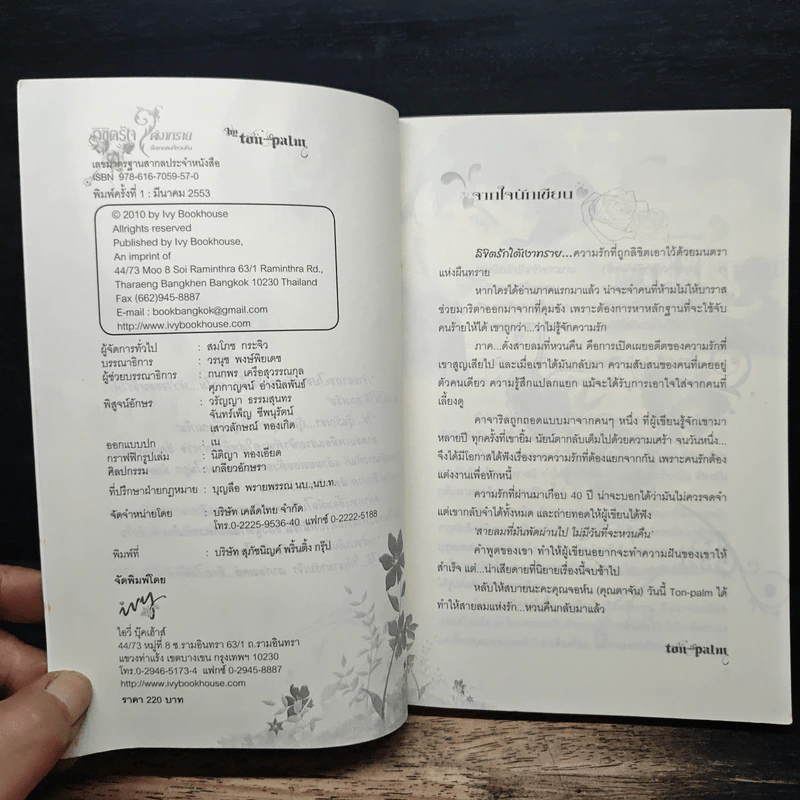 ลิขิตรักใต้เงาทราย
ดั่งสายลมที่หวนคืน
by ton-palm
เลขมาตรฐานสากลประจำหนังสือ
ISBN 978-616-7059-57-0
พิมพ์ครั้งที่ 1 : มีนาคม 2553
© 2010 by Ivy Bookhouse
Allrights reserved
Published by Ivy Bookhouse,
An imprint of
44/73 Moo 8 Soi Raminthra 63/1 Raminthra Rd.,
Tharaeng Bangkhen Bangkok 10230 Thailand
Fax (662)945-8887
E-mail : bookbangkok@gmail.com
http://www.ivybookhouse.com
ผู้จัดการทั่วไป : สมโภช กระจิว
บรรณาธิการ : วรนุช พงษ์พิยเดช
ผู้ช่วยบรรณาธิการ : ถนกพร เครือสุวรรณกุล
ศุภกาญจน์ อ่างนิลพันธ์
พิสูจน์อักษร : วรัญญา ธรรมสุนทร
จันทร์เพ็ญ ชีพนุรัตน์
เสาวลักษณ์ ทองเกิด
ออกแบบปก : เน
กราฟฟิกรูปเล่ม : นิติญา ทองเอียด
ศิลปกรรม : เกลียวอักษรา
ที่ปรึกษาฝ่ายกฎหมาย : บุญลือ พรายพรรณ นบ.,นบ.ท.
จัดจำหน่ายโดย : บริษัท เคล็ดไทย จำกัด
โทร.0-2225-9536-40 แฟกซ์ 0-2222-5188
พิมพ์ที่ : บริษัท สุภัชนิญค์ พริ้นติ้ง กรุ๊ป
จัดพิมพ์โดย
ivy
ไอวี่ บุ๊คเฮ้าส์
44/73 หมู่ที่ 8 ซ.รามอินทรา 63/1 ถ.รามอินทรา
แขวงท่าแร้ง เขตบางเขน กรุงเทพฯ 10230
โทร.0-2946-5173-4 แฟกซ์ 0-2945-8887
http://www.ivybookhouse.com
ราคา 220 บาท
จากใจนักเขียน
ลิขิตรักใต้เงาทราย...ความรักที่ถูกลิขิตเอาไว้ด้วยมนตรา
แห่งผืนทราย
หากใครได้อ่านภาคแรกมาแล้ว น่าจะจำคนที่ห้ามไม่ให้บาราส
ช่วยมาริตาออกมาจากที่คุมขัง เพราะต้องการหาหลักฐานที่จะใช้จับ
คนร้ายให้ได้ เขาถูกว่า...ว่าไม่รู้จักความรัก
ภาค...ดั่งสายลมที่หวนคืน คือการเปิดเผยอดีตของความรักที่
เขาสูญเสียไป และเมื่อเขาได้มันกลับมา ความสับสนของคนที่เคยอยู่
ตัวคนเดียว ความรู้สึกแปลกแยก แม้จะได้รับการเอาใจใส่จากคนที่
เลี้ยงดู
คาจาริลถูกถอดแบบมาจากคนๆ หนึ่ง ที่ผู้เขียนรู้จักเขามา
หลายปี ทุกครั้งที่เขายิ้ม นัยน์ตากลับเต็มไปด้วยความเศร้า จนวันหนึ่ง...
จึงได้มีโอกาสได้ฟังเรื่องราวความรักที่ต้องแยกจากกัน เพราะคนรักต้อง
แต่งงานเพื่อหักหนี้
ความรักที่ผ่านมาเกือบ 40 ปี น่าจะบอกได้ว่ามันไม่ควรจดจำ
แต่เขากลับจำได้ทั้งหมด และถ่ายทอดให้ผู้เขียนได้ฟัง
'สายลมที่มันพัดผ่านไป ไม่มีวันที่จะหวนคืน'
คำพูดของเขา ทำให้ผู้เขียนอยากจะทำความฝันของเขาให้
สำเร็จ แต่...น่าเสียดายที่นิยายเรื่องนี้จบช้าไป
หลับให้สบายนะคะคุณจอห์น (คุณตาจัน) วันนี้ Ton-palm ได้
ทำให้สายลมแห่งรัก...หวนคืนกลับมาแล้ว
ton-palm